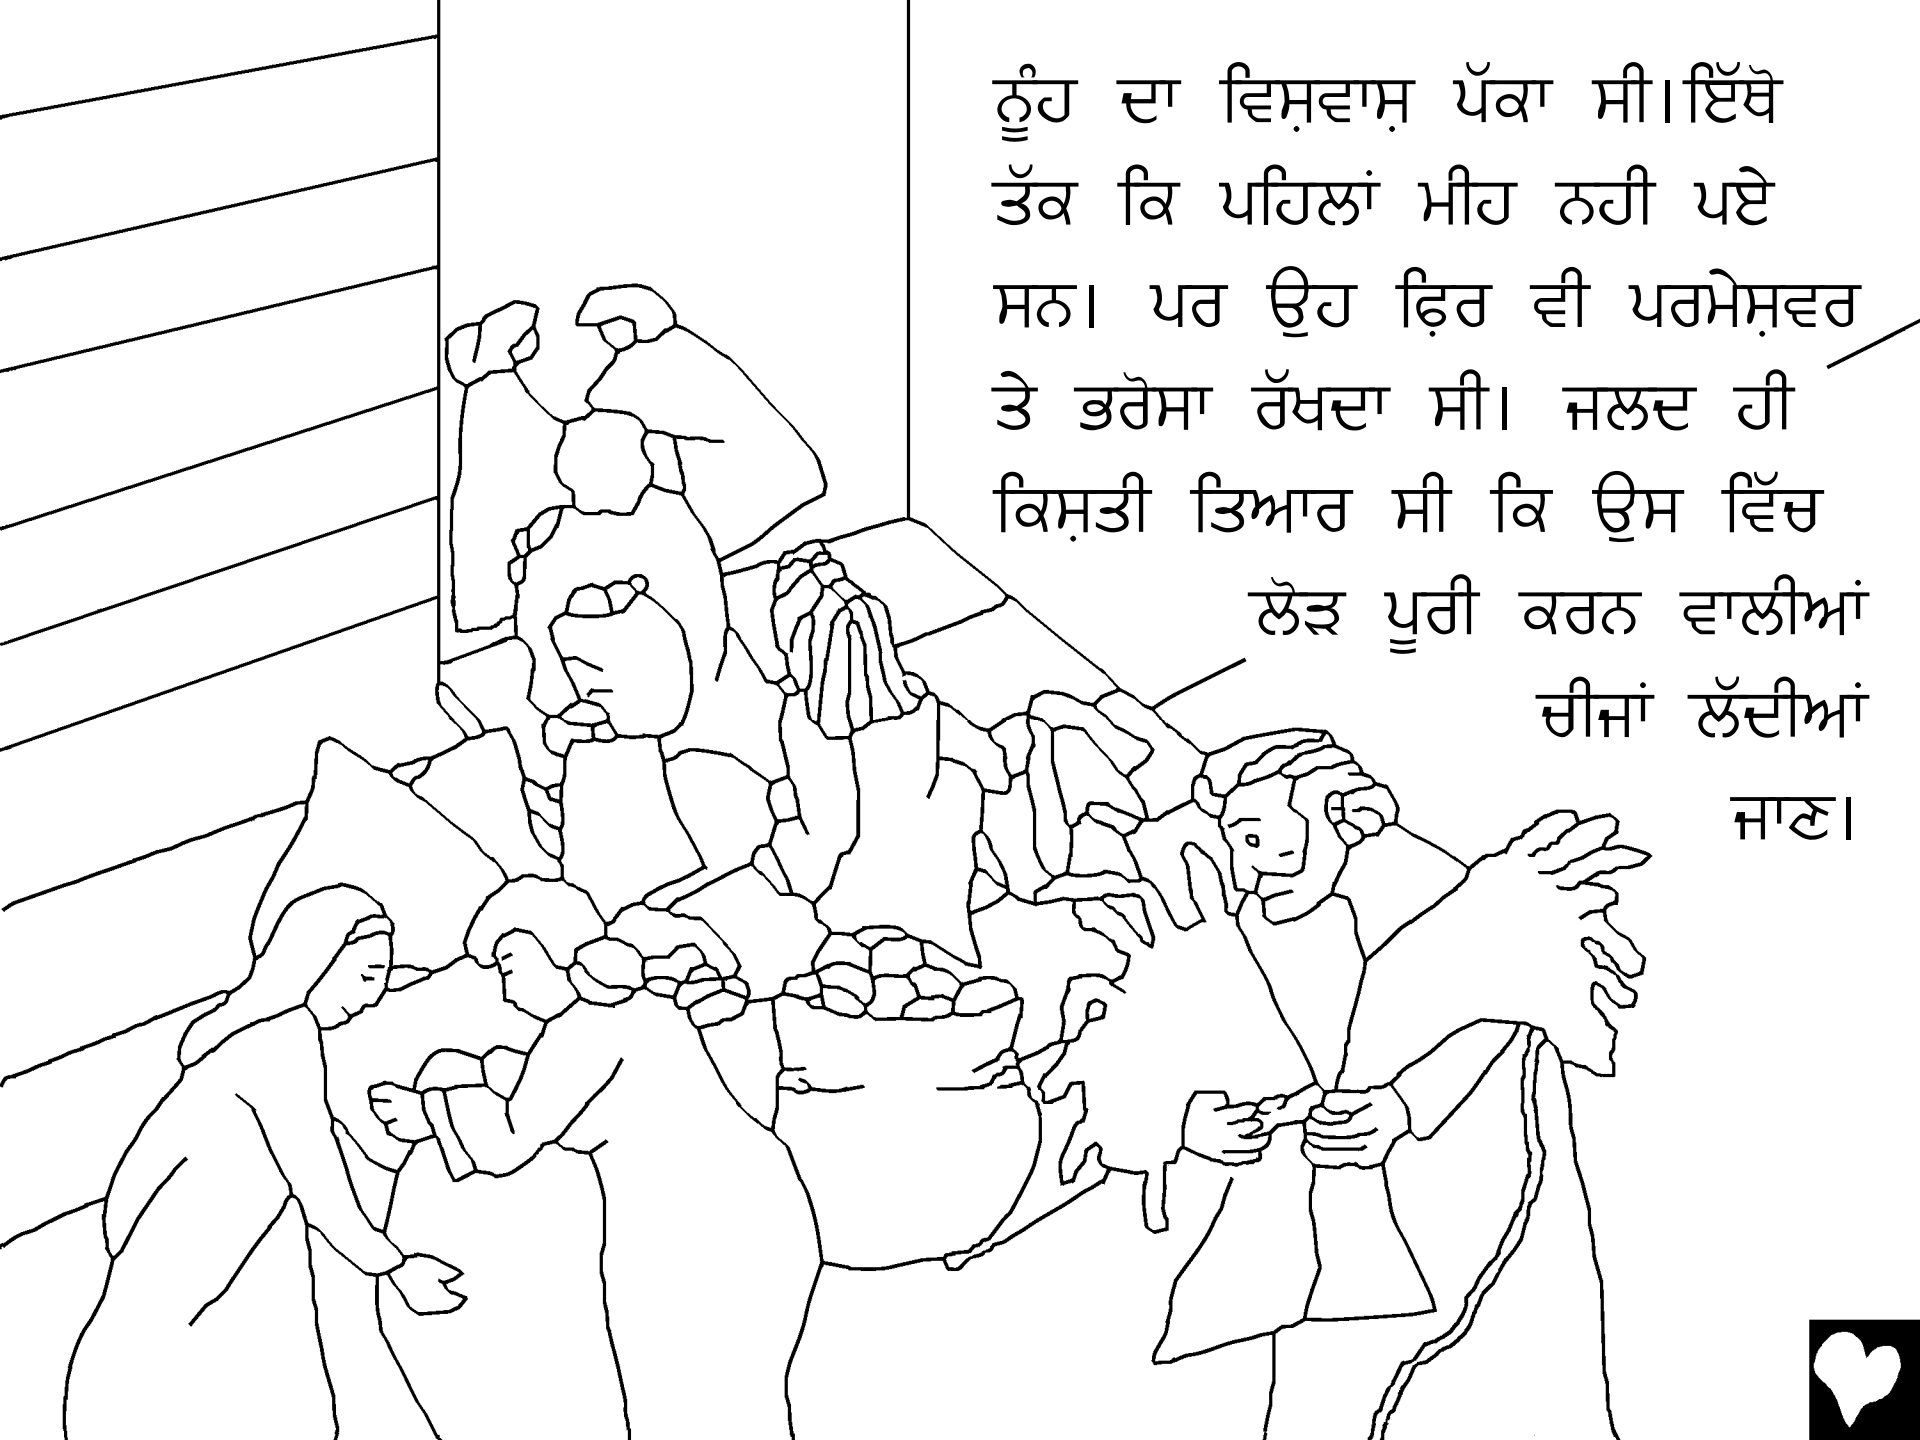 ਨੂੰਹ ਦਾ ਵਿਸ਼ਵਾਸ਼ ਪੱਕਾ ਸੀ।ਇੱਥੋ
ਤੱਕ ਕਿ ਪਹਿਲਾਂ ਮੀਹ ਨਹੀ ਪਏ
ਸਨ। ਪਰ ਉਹ ਫ਼ਿਰ ਵੀ ਪਰਮੇਸ਼ਵਰ
ਤੇ ਭਰੋਸਾ ਰੱਖਦਾ ਸੀ। ਜਲਦ ਹੀ
ਕਿਸ਼ਤੀ ਤਿਆਰ ਸੀ ਕਿ ਉਸ ਵਿੱਚ
ਲੋੜ ਪੂਰੀ ਕਰਨ ਵਾਲੀਆਂ
ਚੀਜਾਂ ਲੱਦੀਆਂ
ਜਾਣ।